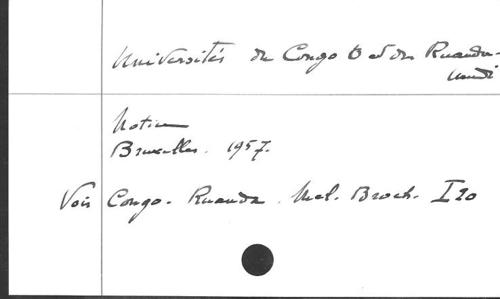 Universités du Congo B et du Ruanda-
Urundi
Notice
Bruxelles. 1957.
Voir Congo-Ruanda. Mél. Broch. I 20